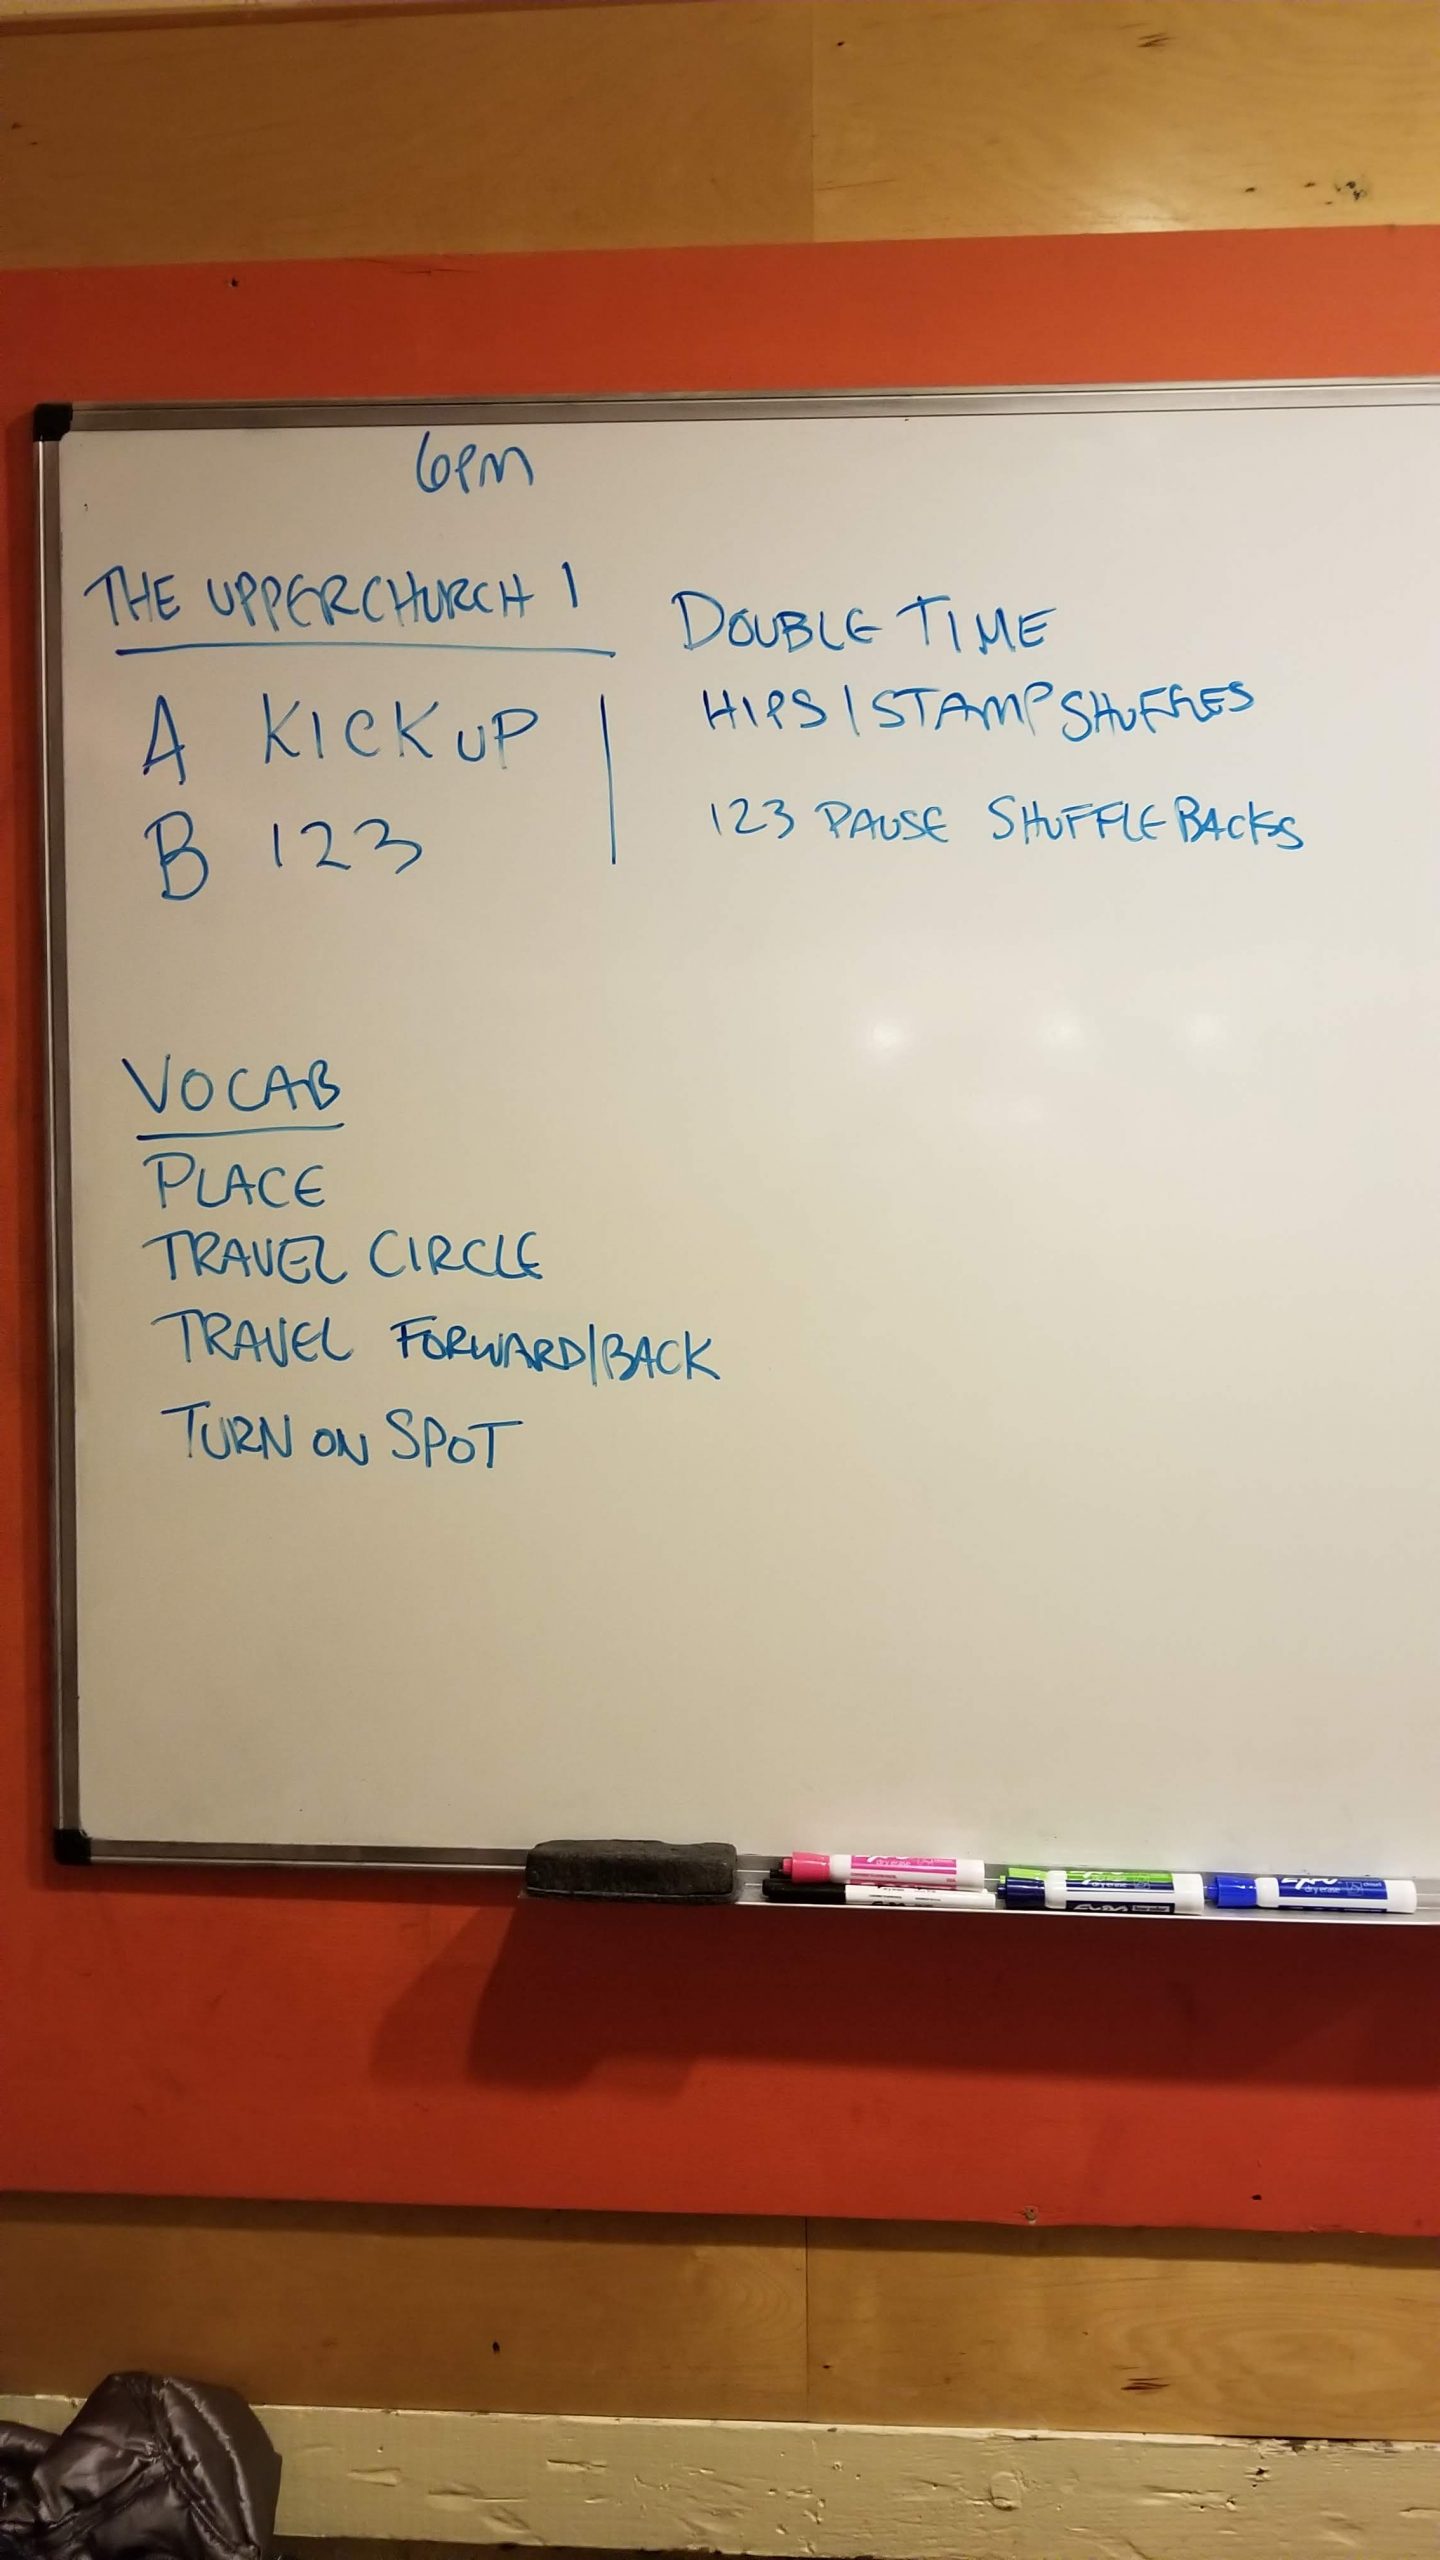 6PM
THE UPPERCHURCH 1
A KICK UP
B 123
DOUBLE TIME
HIPS / STAMP SHUFFLES
123 PAUSE SHUFFLE BACKS
VOCAB
PLACE
TRAVEL CIRCLE
TRAVEL FORWARD/BACK
TURN ON SPOT
dry erase
dry erase
EXPO
EXPO
dry erase